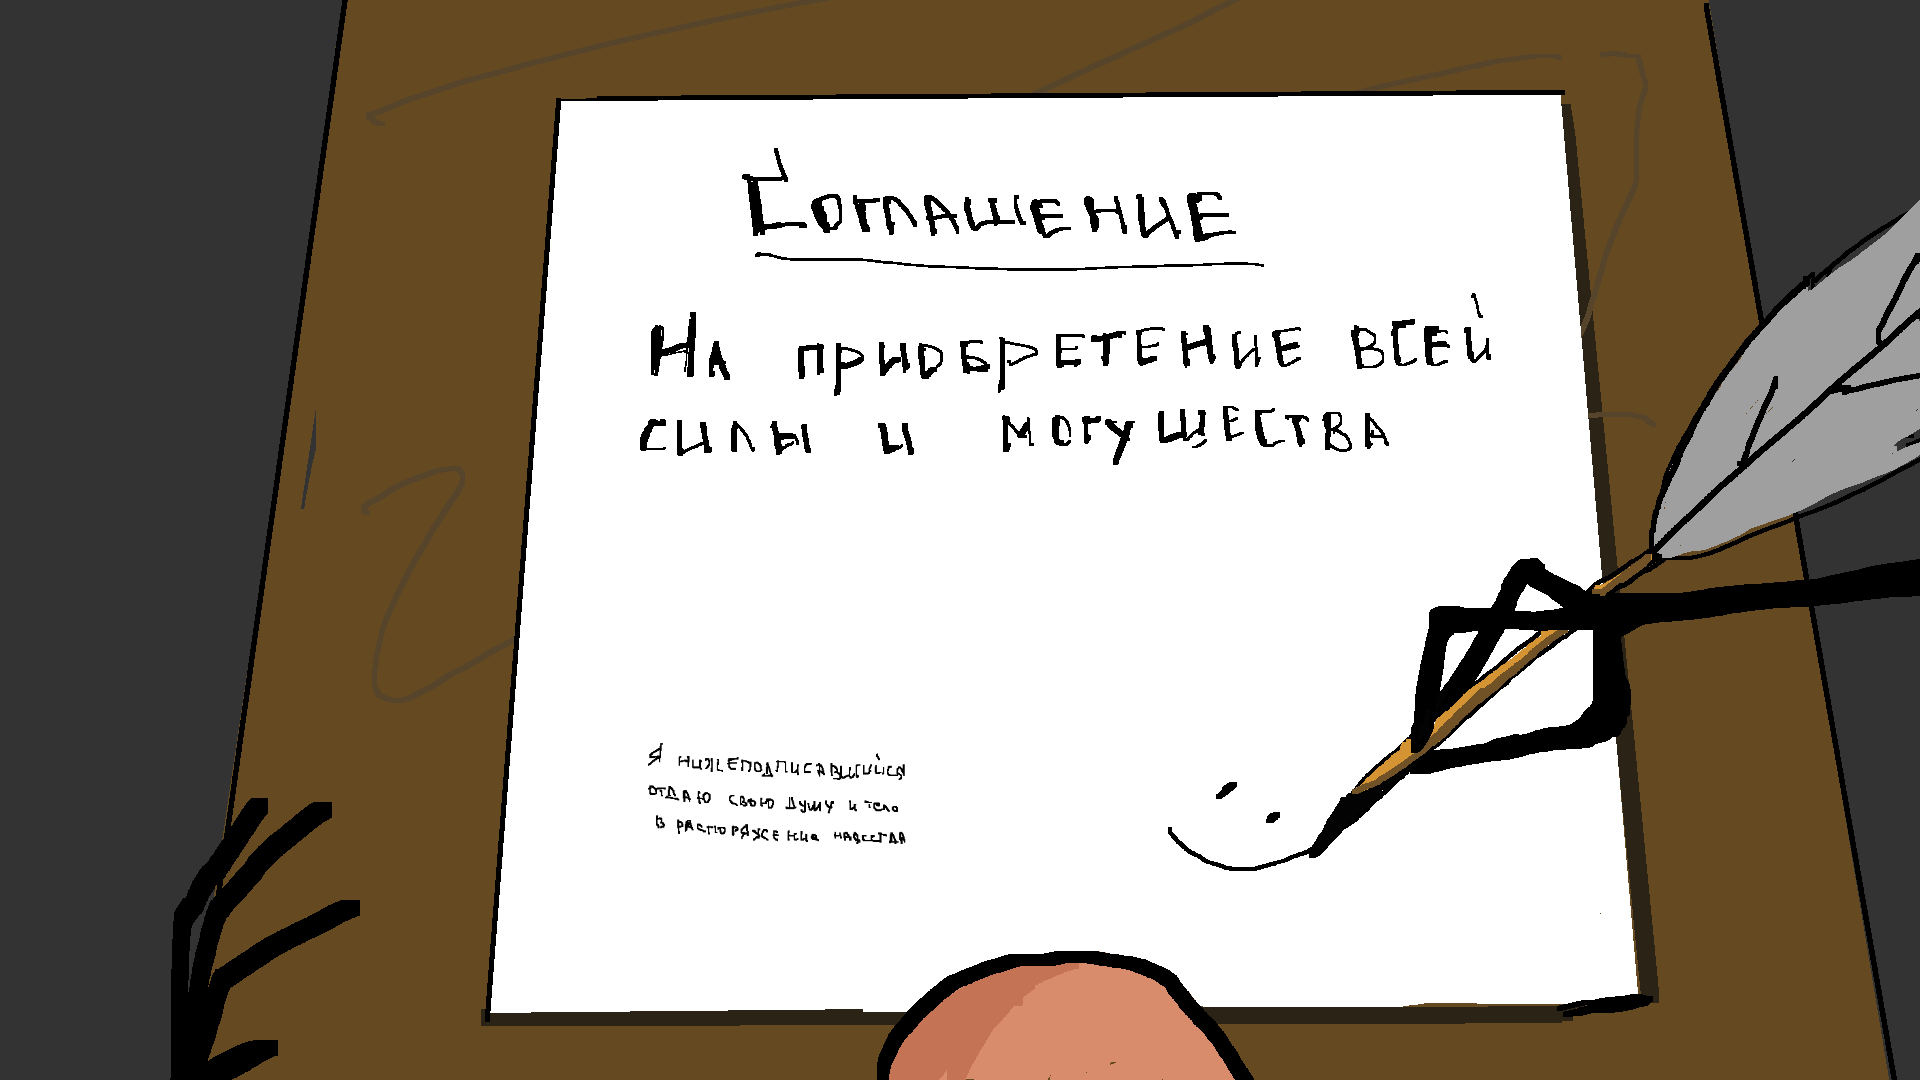 Соглашение
На приобретение всей
силы и могущества
Я нижеподписавшийся
отдаю свою душу и тело
в распоряжение навсегда